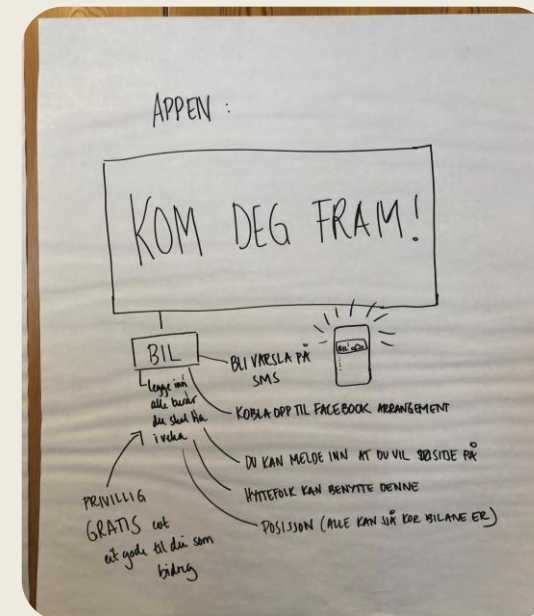 APPEN :
KOM DEG FRAM!
BIL
BLI VARSLA PÅ
SMS
legge inn
alle turar
du skal ta
i veka
KOBLA OPP TIL FACEBOOK ARRANGEMENT
DU KAN MELDE INN AT DU VIL SITTE PÅ
HYTTEFOLK KAN BENYTTE DENNE
POSISJON (ALLE KAN SJÅ KOR BILANE ER)
FRIVILLIG
GRATIS
eit gode til dei som
bidreg